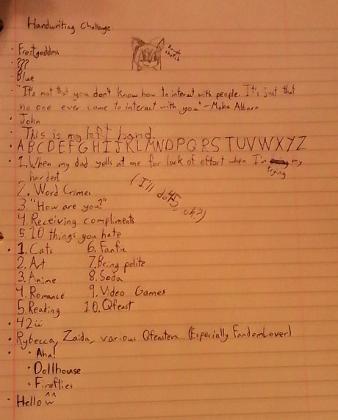 Handwriting Challenge
· Frostgoddma
· ???
· Blue
· "It's not that you don't know how to interact with people. It's just that
no one ever came to interact with you" - Maka Albarn
· John
· This is my left hand.
· ABCDEFGHIJKLMNOPQRSTUVWXYZ
· 1. When my dad yells at me for lack of effort when I'm my
hardest trying
2. Word Crimes
3. "How are you?"
4. Receiving compliments
5. 10 things you hate
(I'll do 45, ok?)
· 1. Cats 6. Fanfic
2. Art 7. Being polite
3. Anime 8. Soda
4. Romance 9. Video Games
5. Reading 10. Qfeast
· 42
· Rybecca, Zaida, various Qfeasters (Especially FandomLover)
· Aha!
· Dollhouse
· Fireflies
· Hello ^^